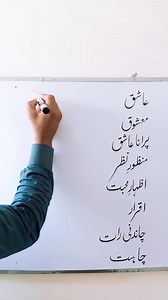 عاشق
معشوق
پرانا عاشق
منظورِ نظر
اظہارِ محبت
اقرار
چاندنی رات
چاہت